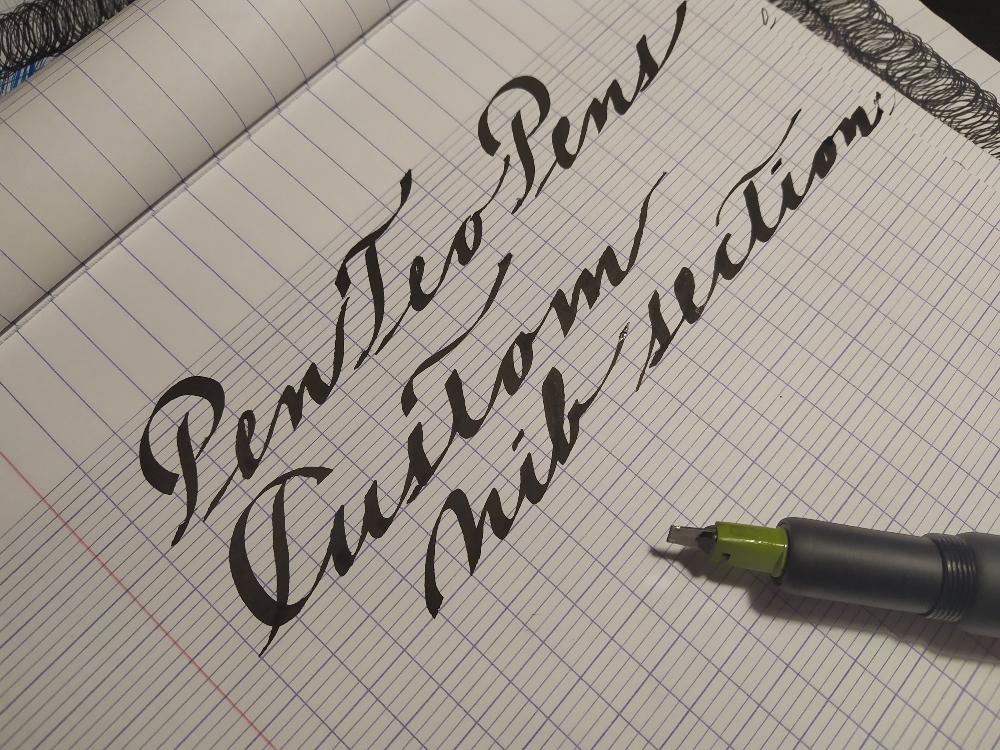 PenTeo Pens
Custom
nib section